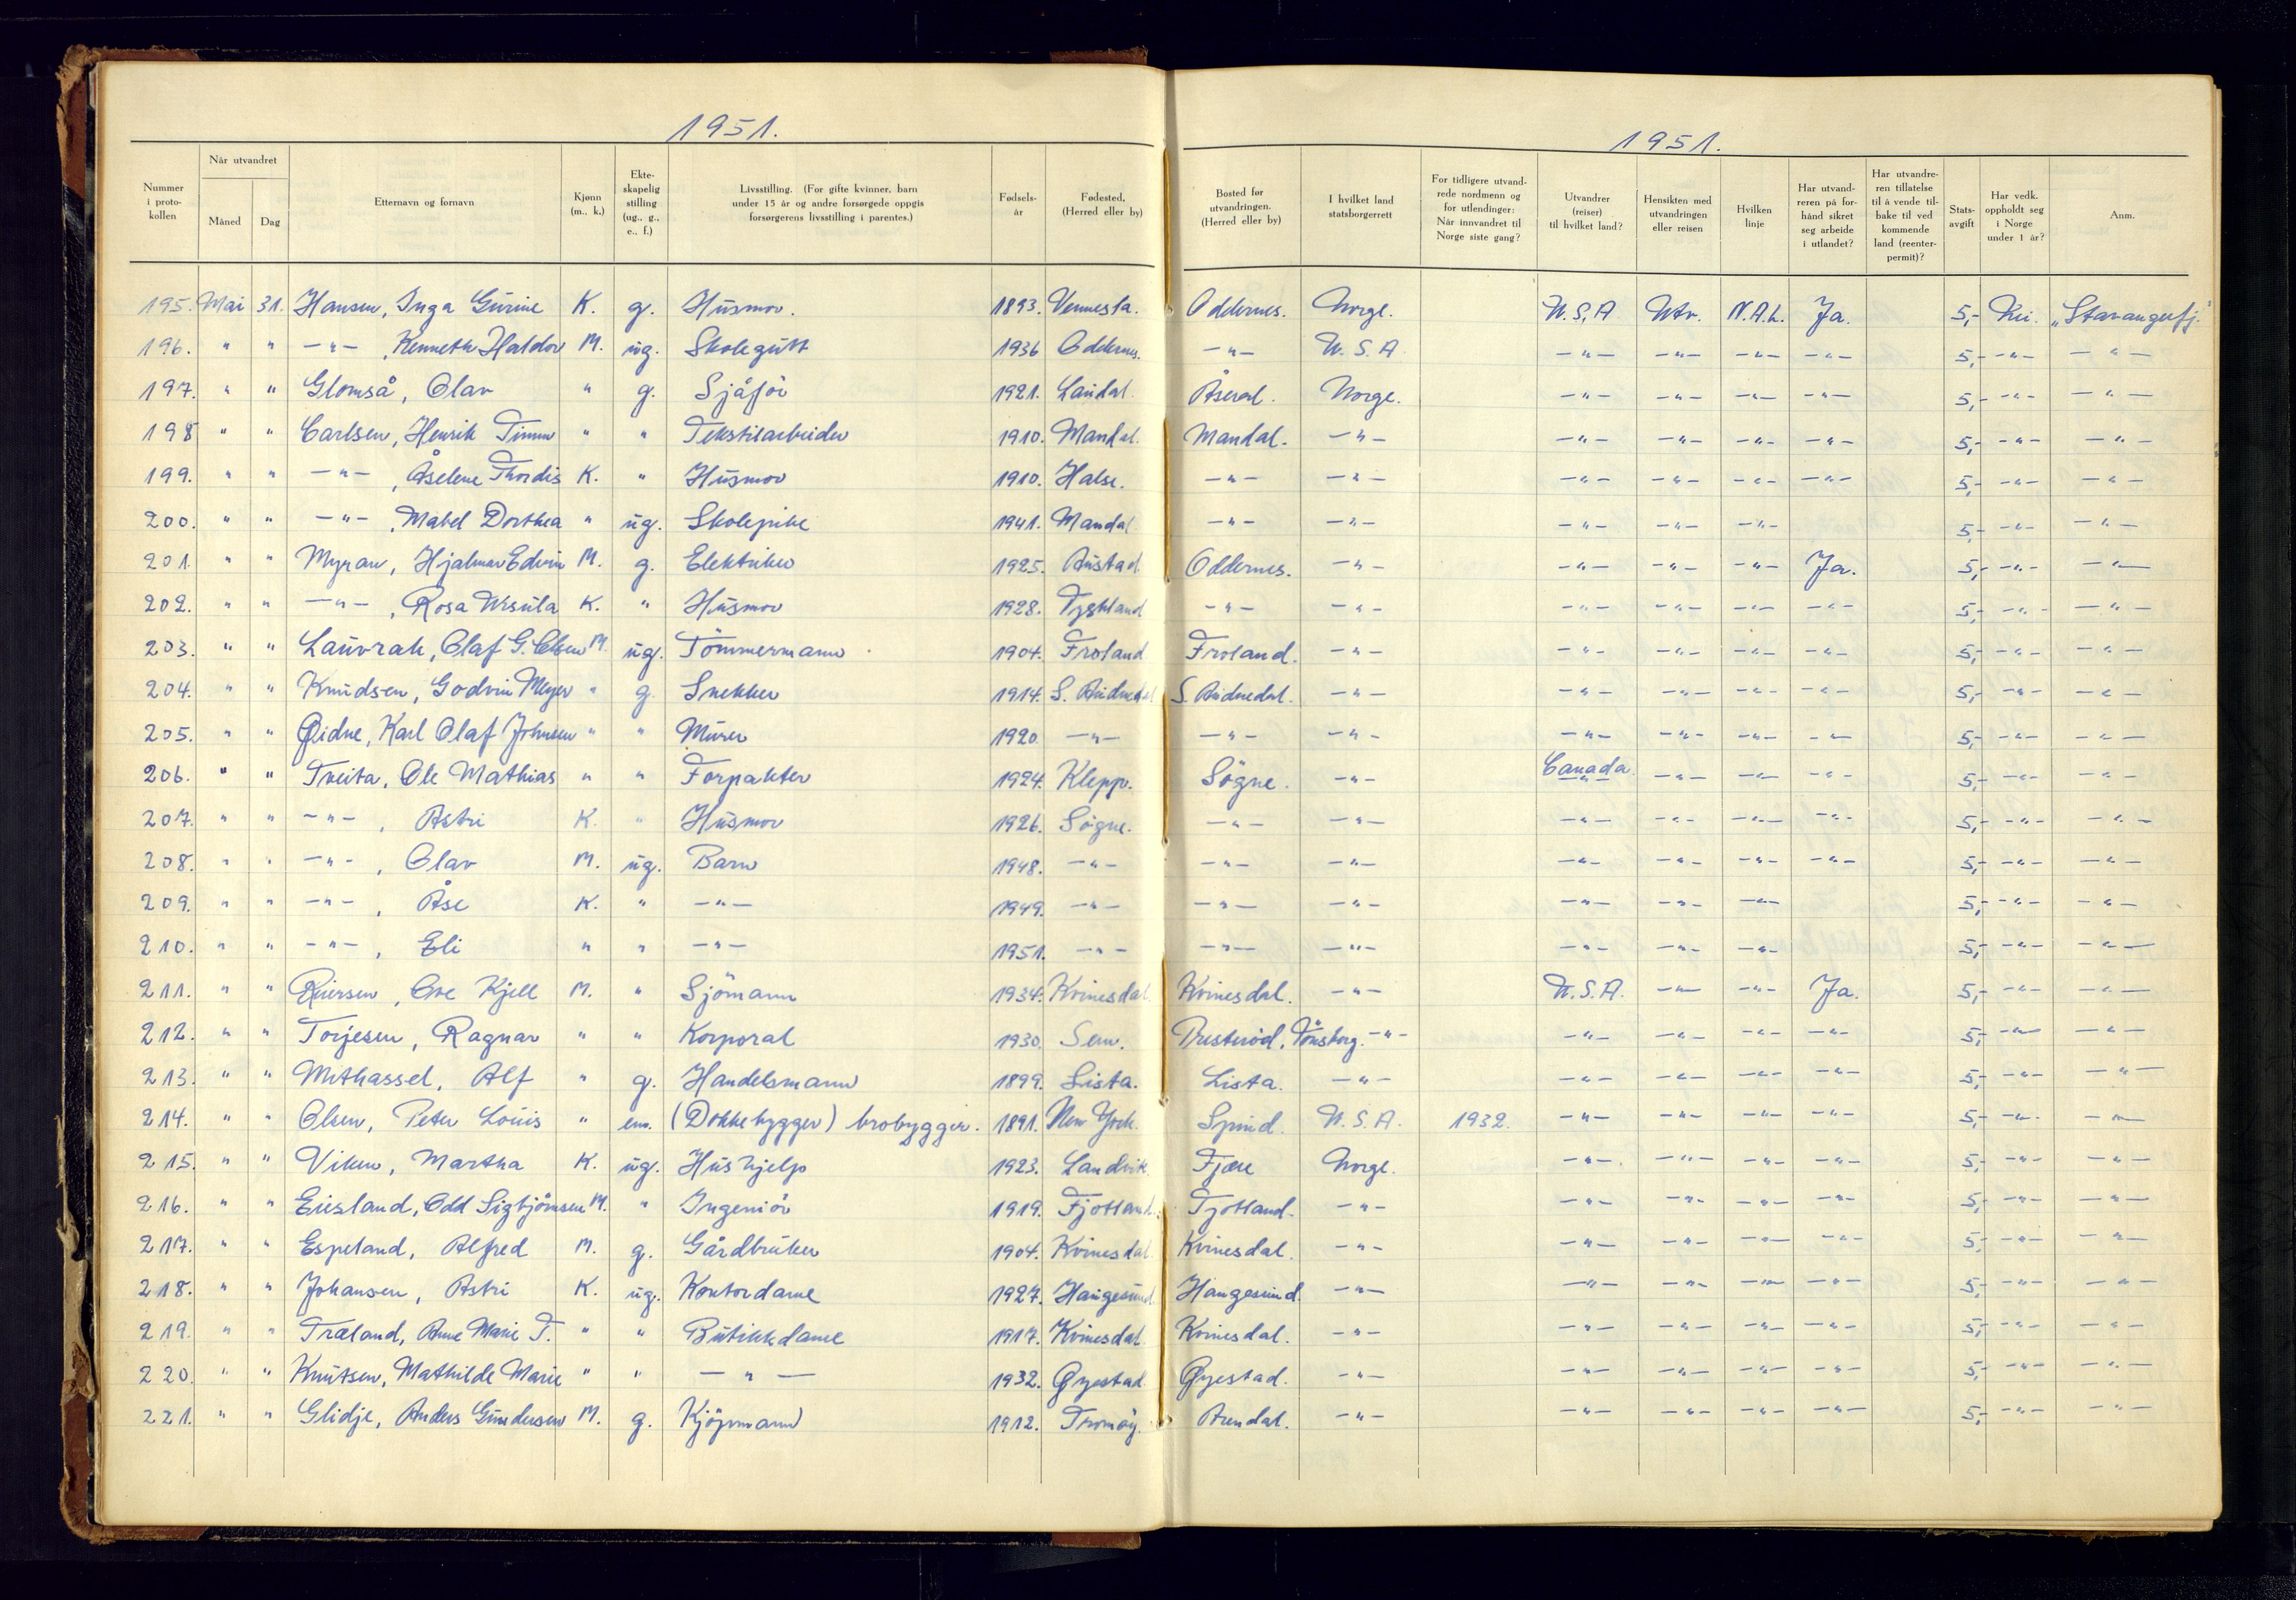 1951.
1951.
Nummer i proto-kollen | Når utvandret Måned | Dag | Etternavn og fornavn | Kjønn (m., k.) | Ekte-skapelig stilling (ug., g., e., f.) | Livsstilling. (For gifte kvinner, barn under 15 år og andre forsørgede oppgis forsørgerens livsstilling i parentes.) | Fødsels-år | Fødested, (Herred eller by) | Bosted før utvandringen. (Herred eller by) | I hvilket land statsborgerrett | For tidligere utvand-rede nordmenn og for utlendinger: Når innvandret til Norge siste gang? | Utvandrer (reiser) til hvilket land? | Hensikten med utvandringen eller reisen | Hvilken linje | Har utvand-reren på for-hånd sikret seg arbeide i utlandet? | Har utvandre-ren tillatelse til å vende til-bake til ved kommende land (reenter-permit)? | Stats-avgift | Har vedk. oppholdt seg i Norge under 1 år? | Anm.
195. Mai 31. Hansen, Inga Gurine K. g. Husmor. 1893. Vennesla. Oddernes. Norge. U.S.A Utv. N.A.L. Ja. 5,- Nei. „Stavangerfj."
196. " " -"- , Kenneth Haldor M. ug. Skolegutt 1936 Oddernes. -"- U.S.A. -"- -"- -"- -"- 5,- -"- -"-
197. " " Glomså, Olav " g. Sjåfør 1921. Laudal. Åseral. Norge. -"- -"- -"- -"- 5,- -"- -"-
198 " " Carlsen, Henrik Timm " " Tekstilarbeider 1910. Mandal. Mandal. -"- -"- -"- -"- -"- 5,- -"- -"-
199. " " -"- , Åselene Thordis K. " Husmor 1910. Halse. -"- -"- -"- -"- -"- -"- 5,- -"- -"-
200. " " -"- , Mabel Dorthea " ug. Skolepike 1941. Mandal -"- -"- -"- -"- -"- 5,- -"- -"-
201. " " Myran, Hjalmar Edvin M. g. Elektriker 1925. Austad Oddernes. -"- -"- -"- -"- Ja. 5,- -"- -"-
202. " " -"- , Rosa Ursula K. " Husmor 1928. Tyskland -"- -"- -"- -"- -"- -"- 5,- -"- -"-
203. " " Lauvrak, Olaf G. Olsen M. ug. Tømmermann 1904. Froland Froland. -"- -"- -"- -"- -"- 5,- -"- -"-
204. " " Knudsen, Godvin Meyer " g. Snekker 1914. S. Audnedal S. Audnedal. -"- -"- -"- -"- -"- 5,- -"- -"-
205. " " Øidne, Karl Olaf Johnsen " " Murer 1920. -"- -"- -"- -"- -"- -"- -"- 5,- -"- -"-
206. " " Tveita, Ole Mathias " " Forpakter 1924. Klepp. Søgne. -"- Canada -"- -"- -"- 5,- -"- -"-
207. " " -"- , Astri K. " Husmor 1926. Søgne. -"- -"- -"- -"- -"- -"- 5,- -"- -"-
208. " " -"- , Olav M. ug. Barn 1948. -"- -"- -"- -"- -"- -"- -"- 5,- -"- -"-
209. " " -"- , Åse K. " -"- 1949. -"- -"- -"- -"- -"- -"- 5,- -"- -"-
210. " " -"- , Eli " " -"- 1951. -"- -"- -"- -"- -"- -"- 5,- -"- -"-
211. " " Reiersen, Ove Kjell M. " Sjømann 1934. Kvinesdal. Kvinesdal. -"- U.S.A. -"- -"- Ja. 5,- -"- -"-
212. " " Torjesen, Ragnar " " Korporal 1930. Sem. Presterød, Tønsberg. -"- -"- -"- -"- -"- 5,- -"- -"-
213. " " Mithassel, Alf " g. Handelsmann 1899. Lista. Lista. -"- -"- -"- -"- -"- 5,- -"- -"-
214. " " Olsen, Peter Louis " em. (Dokkebygger) brobygger. 1891. New York. Spind. U.S.A. 1932. -"- -"- -"- -"- 5,- -"- -"-
215. " " Viken, Martha K. ug. Hushjelp 1923. Landvik. Fjære Norge. -"- -"- -"- -"- 5,- -"- -"-
216. " " Eiesland, Odd Sigbjørnsen M. " Ingeniør 1919. Fjotland. Fjotland. -"- -"- -"- -"- -"- 5,- -"- -"-
217. " " Espeland, Alfred M. g. Gårdbruker 1904. Kvinesdal Kvinesdal. -"- -"- -"- -"- -"- 5,- -"- -"-
218. " " Johansen, Astri K. ug. Kontordame 1927. Haugesund Haugesund. -"- -"- -"- -"- -"- 5,- -"- -"-
219. " " Træland, Anne Marie T. " " Butikkdame 1917. Kvinesdal Kvinesdal. -"- -"- -"- -"- -"- 5,- -"- -"-
220. " " Knutsen, Mathilde Marie " " -"- 1932. Øyestad Øyestad. -"- -"- -"- -"- -"- 5,- -"- -"-
221. " " Glidje, Anders Gundersen M. g. Kjøpmann 1912. Tromøy. Arendal. -"- -"- -"- -"- -"- 5,- -"- -"-